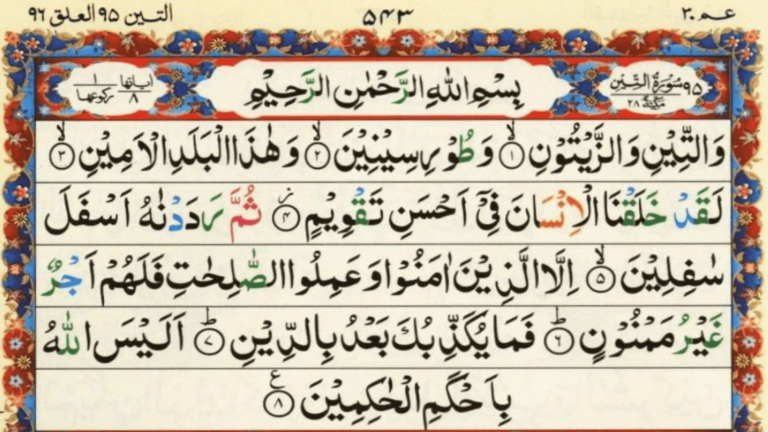 عم ٣٠ ٥٤٣ التين ٩٥ العلق ٩٦
٩٥ سُوْرَةُ التِّيْنِ مَكِّيَّةٌ ٢٨ بِسْمِ اللّٰهِ الرَّحْمٰنِ الرَّحِيْمِ اٰياتها ٨ ركوعها ١
وَالتِّيْنِ وَالزَّيْتُوْنِ ۙ﴿۱﴾ وَطُوْرِ سِيْنِيْنَ ۙ﴿۲﴾ وَهٰذَا الْبَلَدِ الْاَمِيْنِ ۙ﴿۳﴾
لَقَدْ خَلَقْنَا الْاِنْسَانَ فِيْٓ اَحْسَنِ تَقْوِيْمٍ ۫﴿۴﴾ ثُمَّ رَدَدْنٰهُ اَسْفَلَ
سٰفِلِيْنَ ۙ﴿۵﴾ اِلَّا الَّذِيْنَ اٰمَنُوْا وَعَمِلُوا الصّٰلِحٰتِ فَلَهُمْ اَجْرٌ
غَيْرُ مَمْنُوْنٍ ؕ﴿۶﴾ فَمَا يُكَذِّبُكَ بَعْدُ بِالدِّيْنِ ؕ﴿۷﴾ اَلَيْسَ اللّٰهُ
بِاَحْكَمِ الْحٰكِمِيْنَ ﴿۸﴾ ع